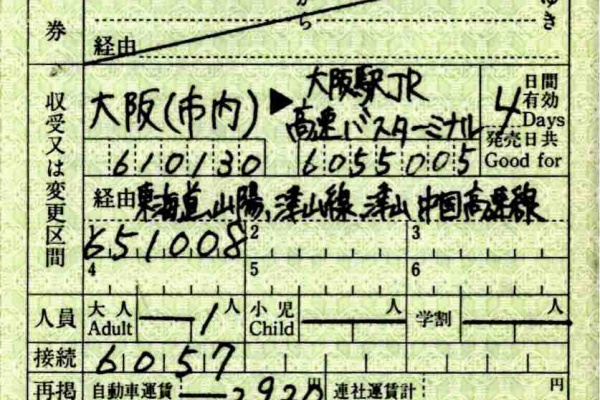 から ゆき
券
経由
収受又は変更区間
大阪(市内) ▶ 大阪駅JR
高速バスターミナル
4 日間有効 Days
発売日共 Good for
610130 6055005
経由 東海道、山陽、津山線、津山 中国高速線
1 651008 2 3
4 5 6
人員 大人 Adult 一1人 小児 Child 人 学割 人
接続 6057
再掲 自動車運賃 一2920円 連社運賃計